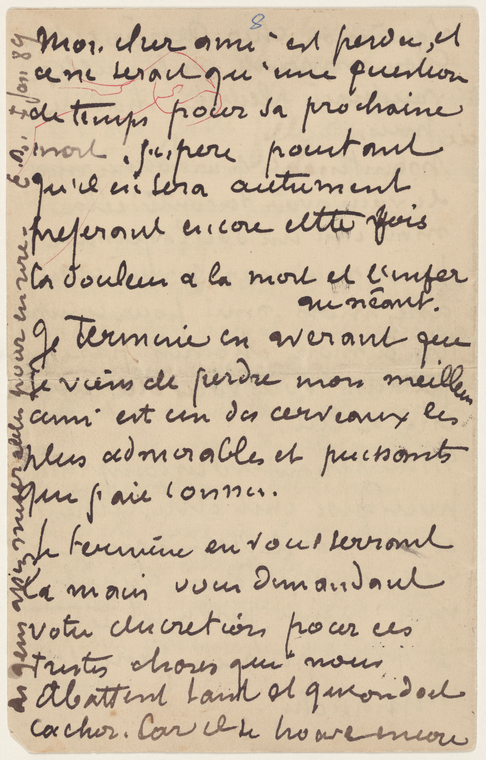 8
Mon cher ami est perdu, et
ce ne serait qu'une question
de temps pour sa prochaine
mort, j'espere pourtant
qu'il en sera autrement
preferant encore cette fois
la douleur a la mort et l'enfer
au néant.
Je termine en averant que
je viens de perdre mon meilleur
ami est un des cerveaux les
plus admirables et puissants
que j'aie connu.
Je termine en vous serrant
la main vous demandant
votre discretion pour ces
tristes choses qui nous
abattent tant et qu'on doit
cacher. Car il se trouve encore
des gens assez miserables pour en rire.